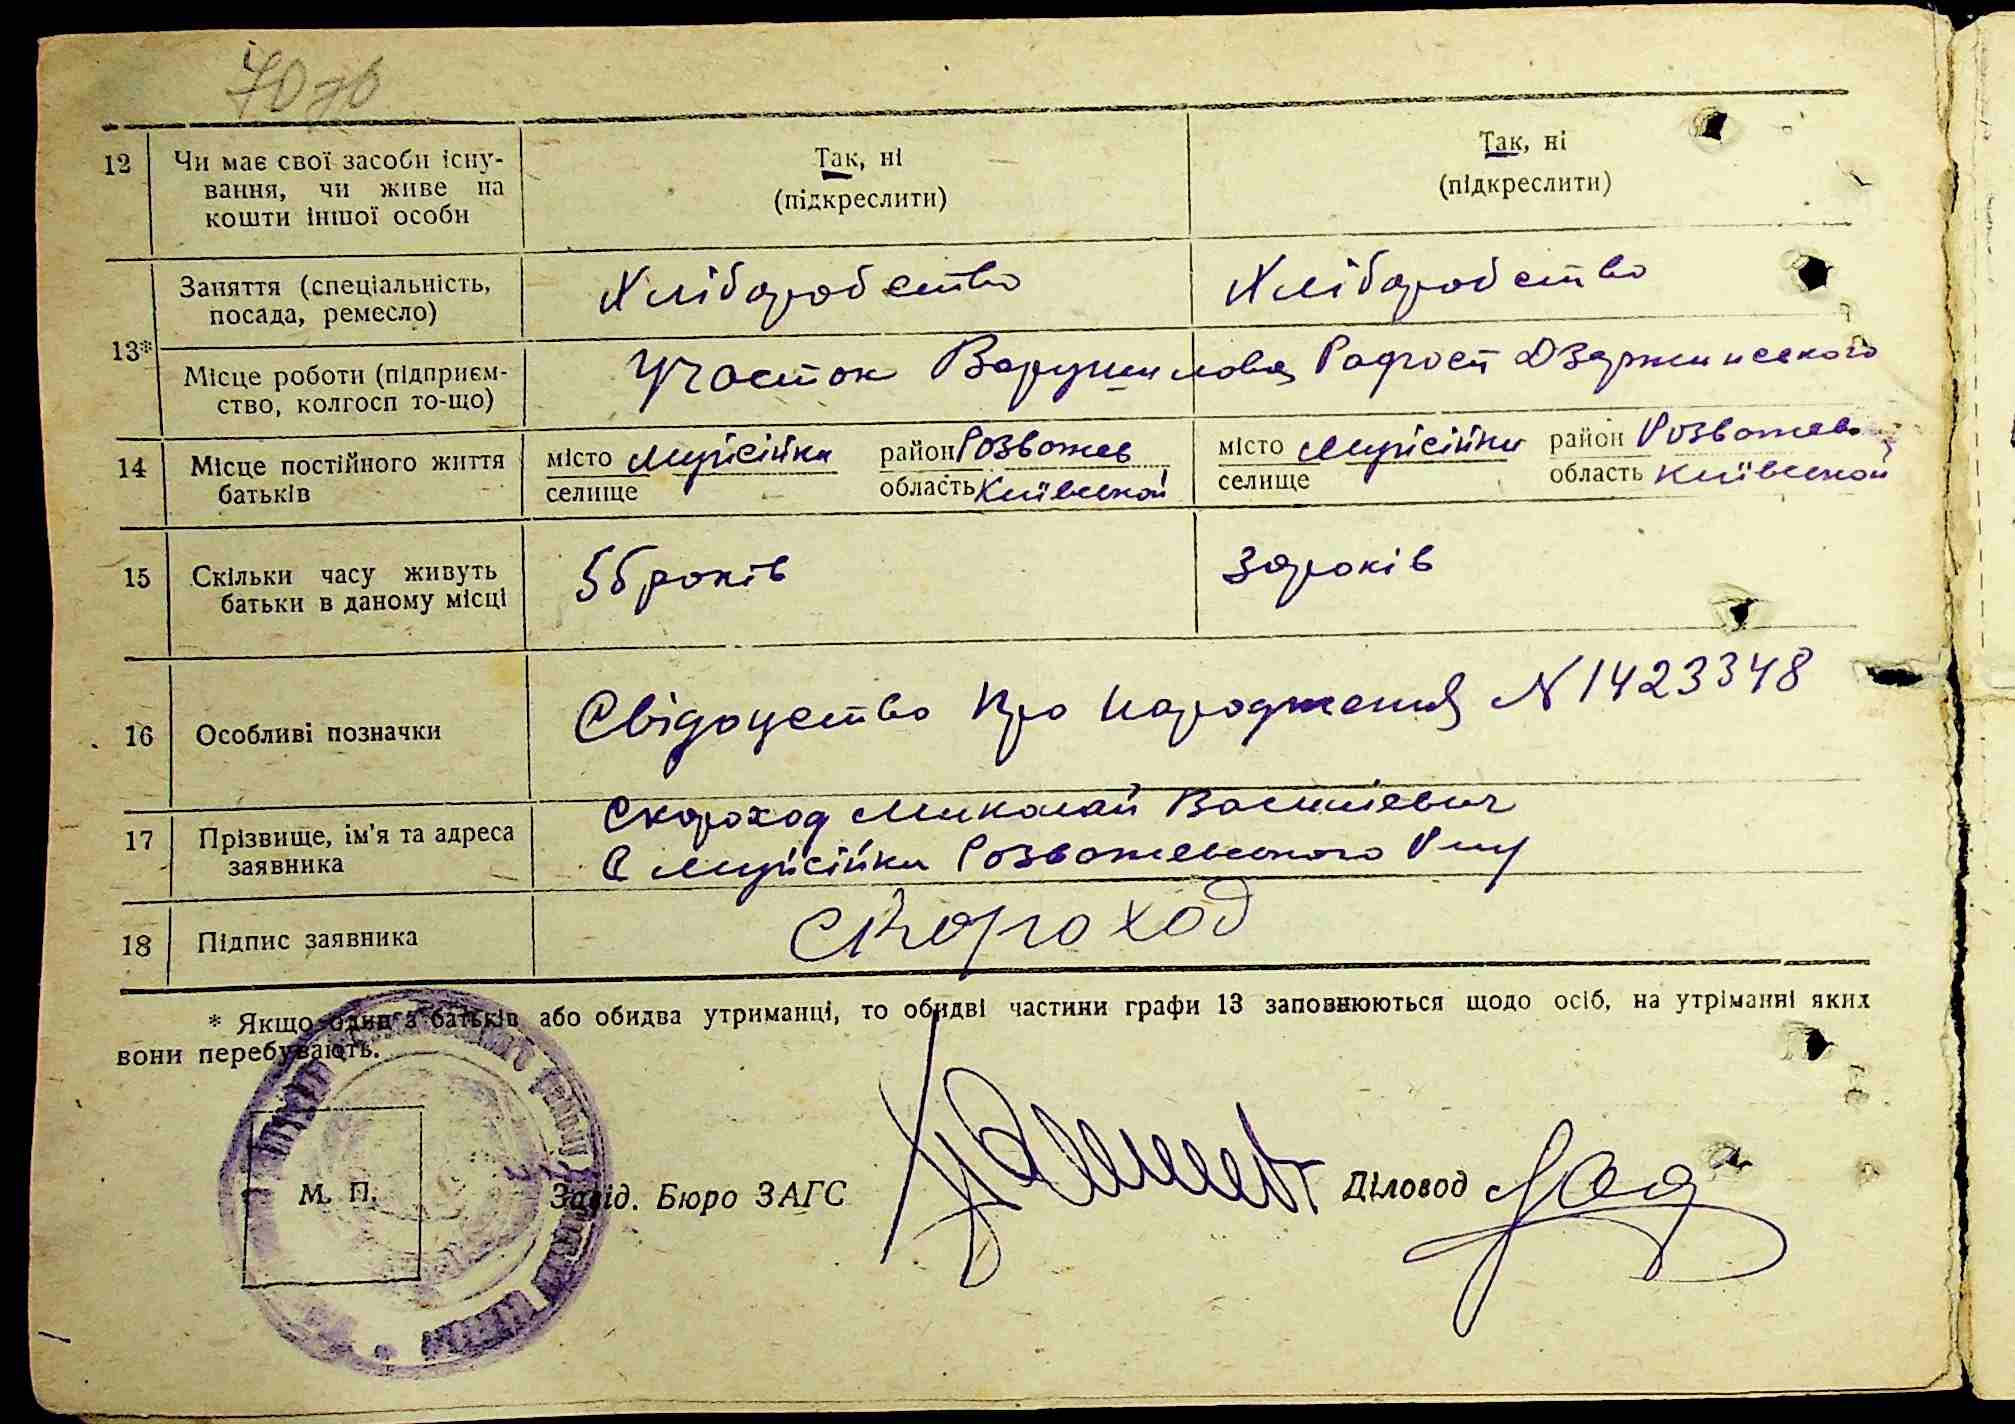 70 зв
12 Чи має свої засоби існу-
вання, чи живе на
кошти іншої особи
Так, ні
(підкреслити)
Так, ні
(підкреслити)
13*
Заняття (спеціальність,
посада, ремесло)
Хліборобство
Хліборобство
Місце роботи (підприєм-
ство, колгосп то-що)
Участок Ворушилова Радгосп Дзержинського
14 Місце постійного життя
батьків
місто Мусійки район Розважев
селище область Київській
місто Мусійки район Розважев
селище область Київській
15 Скільки часу живуть
батьки в даному місці
років
років
16 Особливі позначки
Свідоцство про народження N 1423348
17 Прізвище, ім'я та адреса
заявника
Скороход Миколай Василіевич
С Мусійки Розважевського Р-ну
18 Підпис заявника
Скороход
* Якщо один з батьків або обидва утриманці, то обидві частини графи 13 заповнюються щодо осіб, на утріманні яких
вони перебувають.
М. П.
Завід. Бюро ЗАГС
Діловод